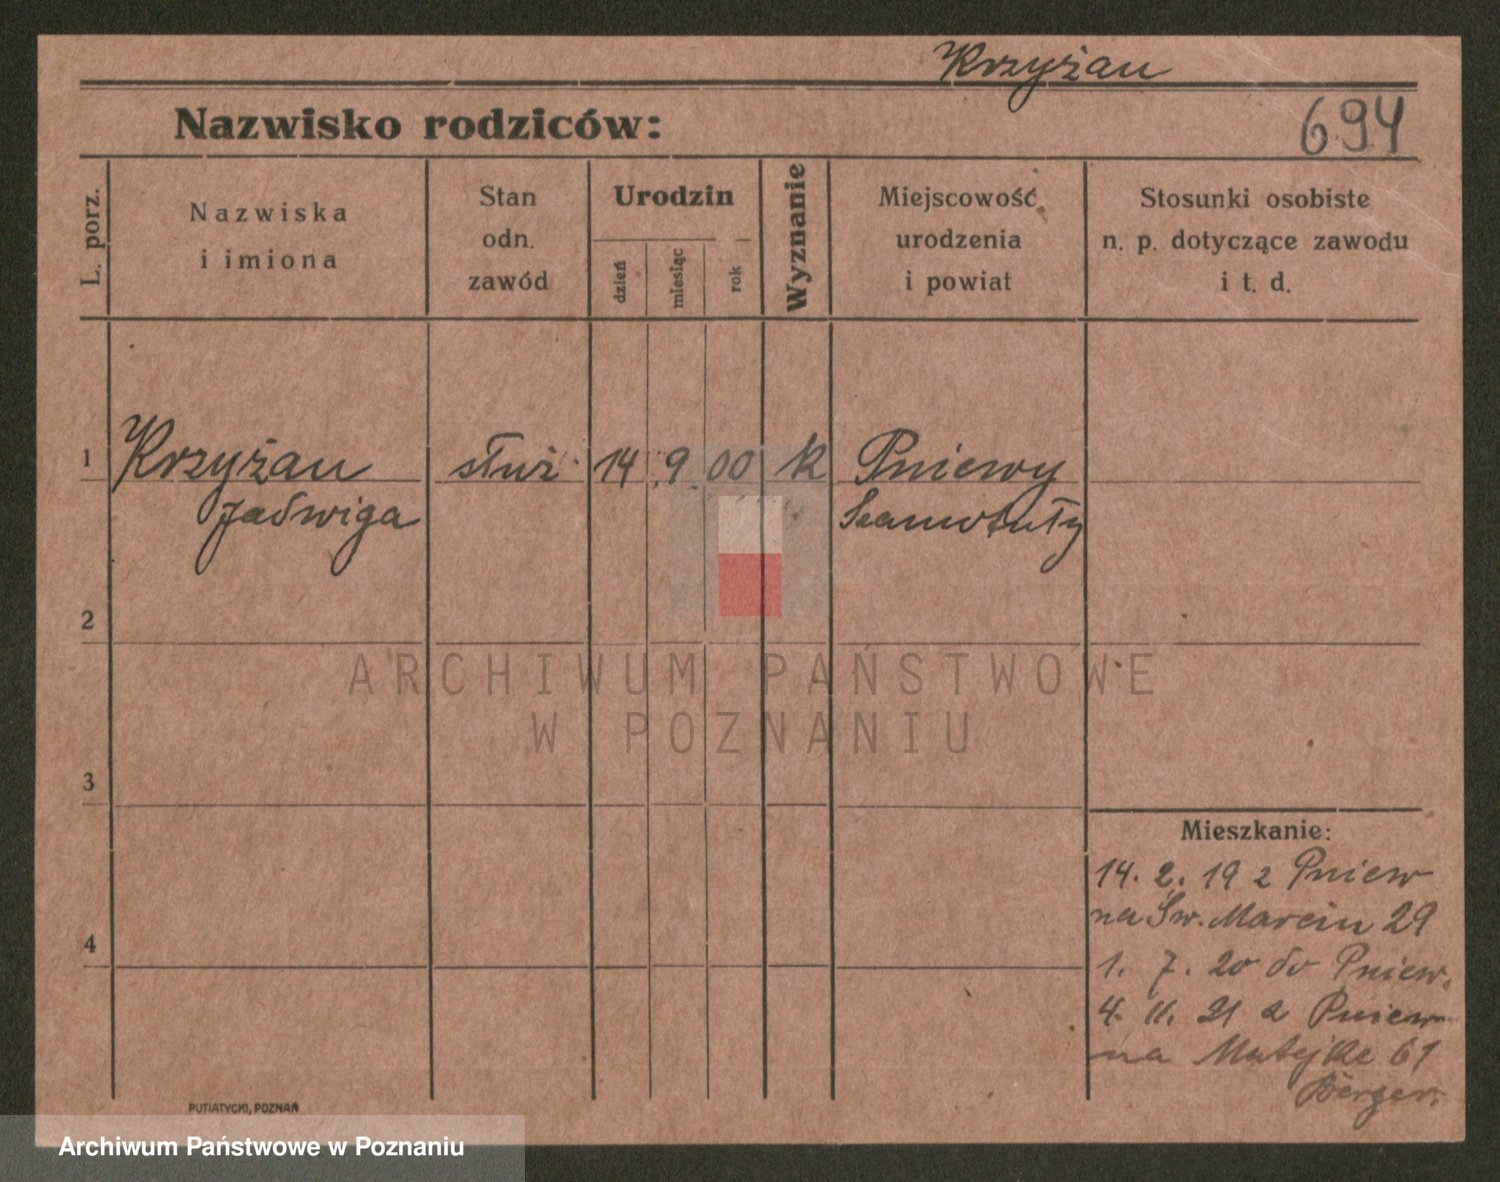 Krzyżan
Nazwisko rodziców:
694
L. porz.
Nazwiska
i imiona
Stan
odn.
zawód
Urodzin
dzień
miesiąc
rok
Wyznanie
Miejscowość
urodzenia
i powiat
Stosunki osobiste
n. p. dotyczące zawodu
i t. d.
1 Krzyżan służ. 14 9 00 k Pniewy
Jadwiga Szamotuły
2
3
4
ARCHIWUM PAŃSTWOWE
W POZNANIU
Mieszkanie:
14. 2. 19 z Pniew
na Św. Marcin 29
1. 7. 20 do Pniew.
4. 11. 21 z Pniew
na Matejke 61
Berger.
PUTIATYCKI, POZNAŃ
Archiwum Państwowe w Poznaniu